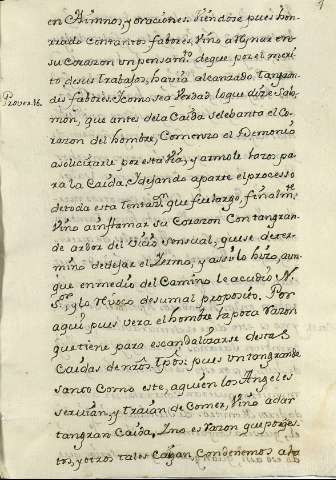 4
en Himnos, y oraciones. Viendose pues hon-
rrado con tantos fabores, Vino a Reynar en
su Corazon un pensam.to de que por el meri-
to, de sus trabajos, havia alcanzado, tan gran-
Prover. 16. des fabores. Y como sea Verdad, lo que dize Salo-
mon, que antes de la Caida se lebanta el Co-
razon del hombre, Comenzo el Demonio
a solicitarle por esta Via, y armole lazos, pa-
ra la Caida. Y dejando aparte el processo
de toda esta tentaz.n que fue largo, finalm.te
Vino a inflamar su Corazon Con tan gran-
de ardor del Vicio sensual, que se deter-
mino de dejar el Yermo, y assi lo hizo, aun-
que en medio del Camino le acudio N.
S.or, y lo Revoco de su mal proposito. Por
aqui pues vera el hombre la poca razon
que tiene para escandalizarse de las
Caidas de n.ros tpos: pues un tan grande
santo Como este, a quien los Angeles
servian, y traian de Comer, Vino a dar
tan gran Caida, Y no es razon que por es-
tos, y otros tales Caygan, Condenemos a to-